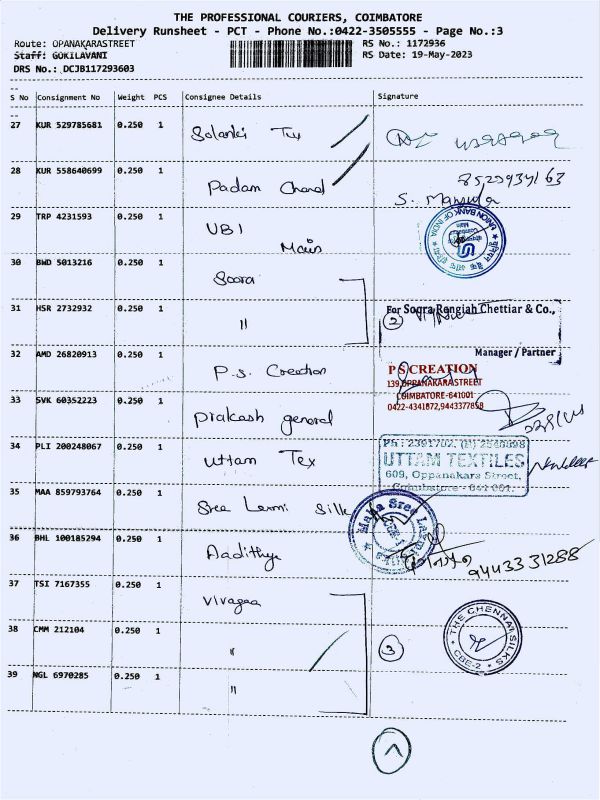 THE PROFESSIONAL COURIERS, COIMBATORE
Delivery Runsheet - PCT - Phone No.:0422-3505555 - Page No.:3
Route: OPANAKARASTREET RS No.: 1172936
Staff: GOKILAVANI RS Date: 19-May-2023
DRS No.: DCJB117293603
S No Consignment No Weight PCS Consignee Details Signature
27 KUR 529785681 0.250 1 Solanki Tex
28 KUR 558640699 0.250 1 Padam Chand
S.
29 TRP 4231593 0.250 1 UBI Main
UNION BANK OF INDIA
30 BWD 5013216 0.250 1 Soora
31 HSR 2732932 0.250 1 "
2
For Soora Rengiah Chettiar & Co.,
Manager / Partner
32 AMD 26820913 0.250 1 P.S. Creation
P S CREATION
139,OPPANAKARASTREET
COIMBATORE-641001
0422-4341872,9443377858
33 SVK 60352223 0.250 1 Prakash general
34 PLI 200248067 0.250 1 Uttam Tex
UTTAM TEXTILES
609, Oppanakara Street,
Coimbatore - 641 001.
35 MAA 859793764 0.250 1 Sree Laxmi Silk
36 BHL 100185294 0.250 1 Aadithya
9443331288
37 TSI 7167355 0.250 1 Vivagaa
38 CMM 212104 0.250 1 "
3
THE CHENNAI SILKS
CBE-2
39 NGL 6970285 0.250 1 "